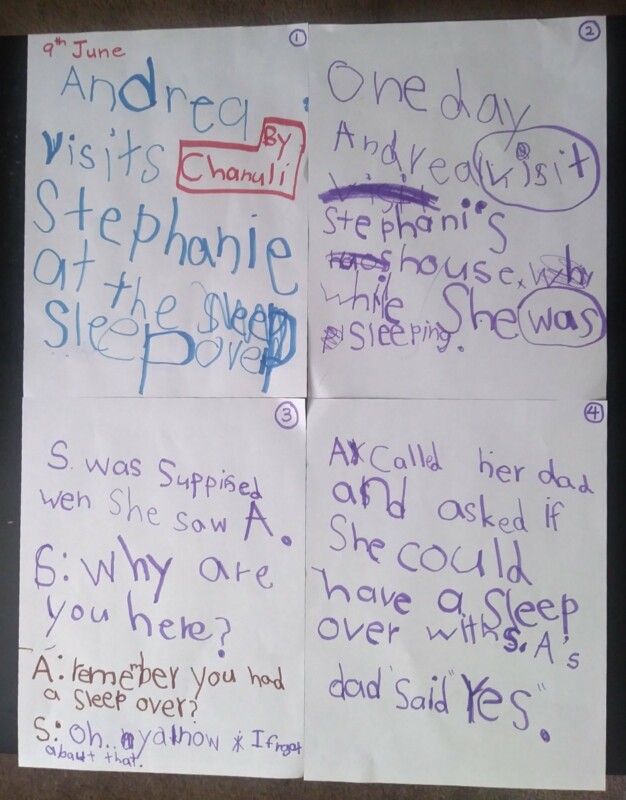 ①
9th June
Andrea
visits
By
Chanuli
Stephanie
at the Sleep
Sleepover
②
One day
Andrea visit
Stephani's
house. why
while She was
Sleeping.
③
S. was Suppiped
wen She Saw A.
S: Why are
you here?
A: remember you had
a sleep over?
S: Oh.. ya I Frget
abaut that.
④
A Called her dad
and asked if
She could
have a Sleep
over with S. A's
dad "said" "Yes".